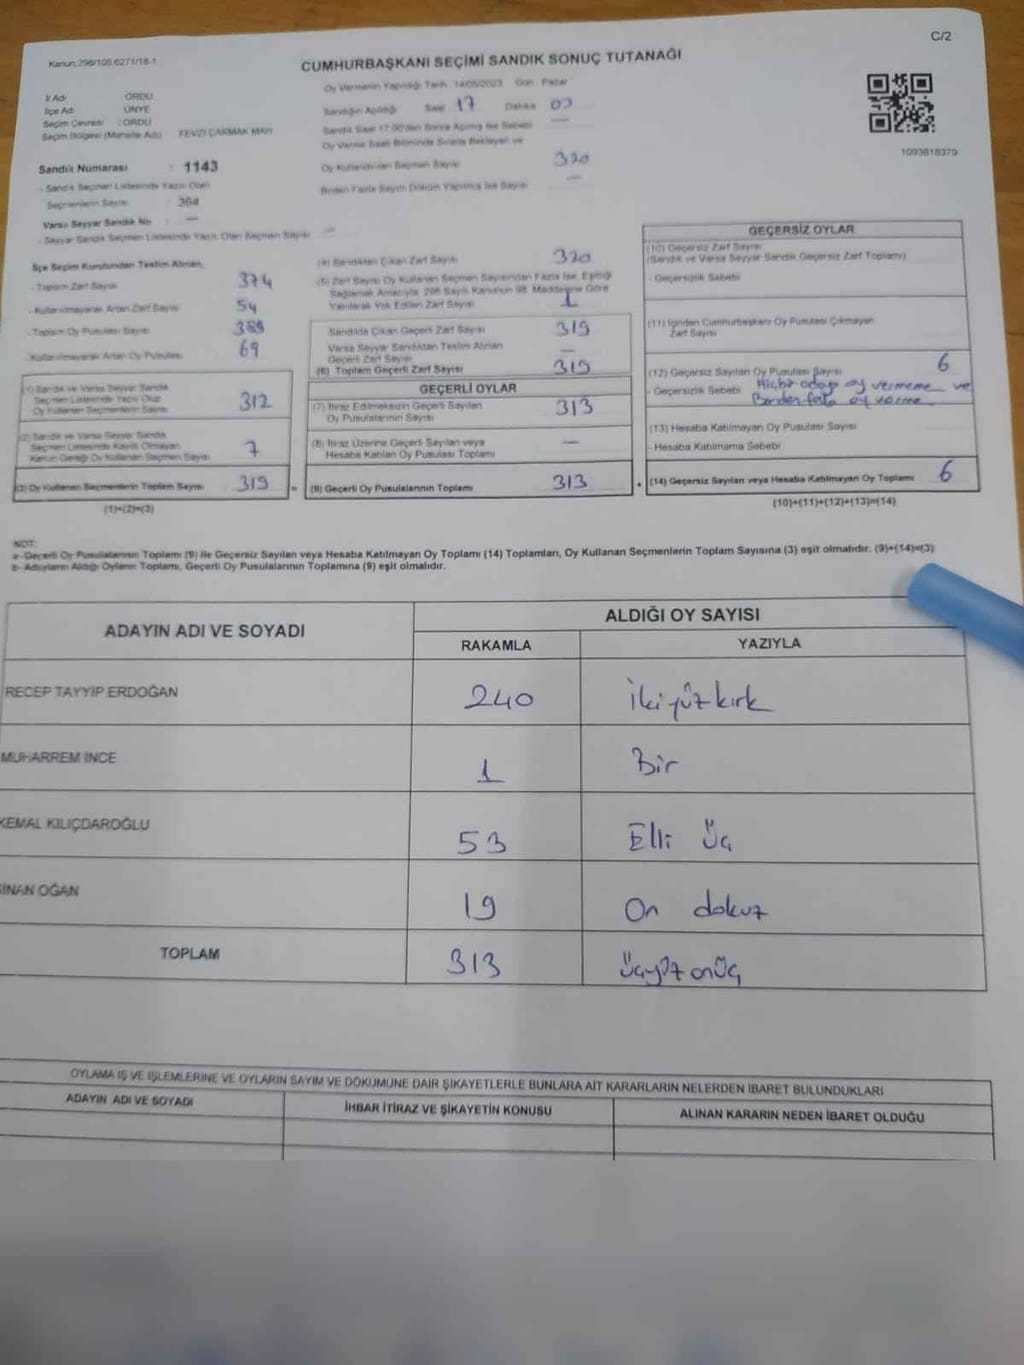 C/2
Kanun:298/105,6271/18-1
CUMHURBAŞKANI SEÇİMİ SANDIK SONUÇ TUTANAĞI
Oy Vermenin Yapıldığı Tarih 14/05/2023 Gün Pazar
İl Adı ORDU
İlçe Adı ÜNYE
Seçim Çevresi : ORDU
Seçim Bölgesi (Mahalle Adı) FEVZİ ÇAKMAK MAH
Sandığın Açıldığı Saat 17 Dakika
Sandık Saat 17:00'den Sonra Açılmış İse Sebebi
Oy Verme Saati Bitiminde Sırada Bekleyen ve
Oy Kullandırılan Seçmen Sayısı 320
Birden Fazla Sayım Döküm Yapılmış İse Sayısı —
1093818379
Sandık Numarası : 1143
- Sandık Seçmen Listesinde Yazılı Olan
Seçmenlerin Sayısı : 364
Varsa Seyyar Sandık No : —
- Seyyar Sandık Seçmen Listesinde Yazılı Olan Seçmen Sayısı —
İlçe Seçim Kurulundan Teslim Alınan;
- Toplam Zarf Sayısı 374
- Kullanılmayarak Artan Zarf Sayısı 54
- Toplam Oy Pusulası Sayısı 389
- Kullanılmayarak Artan Oy Pusulası 69
(1) Sandık ve Varsa Seyyar Sandık
Seçmen Listesinde Yazılı Olup
Oy Kullanan Seçmenlerin Sayısı 312
(2) Sandık ve Varsa Seyyar Sandık
Seçmen Listesinde Kayıtlı Olmayan
Kanun Gereği Oy Kullanan Seçmen Sayısı 7
(3) Oy Kullanan Seçmenlerin Toplam Sayısı 319 =
(1)+(2)=(3)
(4) Sandıktan Çıkan Zarf Sayısı 320
(5) Zarf Sayısı Oy Kullanan Seçmen Sayısından Fazla İse, Eşitliği
Sağlamak Amacıyla 298 Sayılı Kanunun 98. Maddesine Göre
Yakılarak Yok Edilen Zarf Sayısı 1
Sandıkta Çıkan Geçerli Zarf Sayısı 319
Varsa Seyyar Sandıktan Teslim Alınan
Geçerli Zarf Sayısı —
(6) Toplam Geçerli Zarf Sayısı 319
GEÇERLİ OYLAR
(7) İtiraz Edilmeksizin Geçerli Sayılan
Oy Pusulasının Sayısı 313
(8) İtiraz Üzerine Geçerli Sayılan veya
Hesaba Katılan Oy Pusulası Toplamı —
(9) Geçerli Oy Pusulalarının Toplamı 313 +
GEÇERSİZ OYLAR
(10) Geçersiz Zarf Sayısı
(Sandık ve Varsa Seyyar Sandık Geçersiz Zarf Toplamı)
- Geçersizlik Sebebi
(11) İçinden Cumhurbaşkanı Oy Pusulası Çıkmayan
Zarf Sayısı
(12) Geçersiz Sayılan Oy Pusulası Sayısı 6
- Geçersizlik Sebebi Hiçbir adaya oy vermeme ve
Birden fazla oy verme
(13) Hesaba Katılmayan Oy Pusulası Sayısı
- Hesaba Katılmama Sebebi
(14) Geçersiz Sayılan veya Hesaba Katılmayan Oy Toplamı 6
(10)+(11)+(12)+(13)=(14)
NOT:
a- Geçerli Oy Pusulalarının Toplamı (9) ile Geçersiz Sayılan veya Hesaba Katılmayan Oy Toplamı (14) Toplamları, Oy Kullanan Seçmenlerin Toplam Sayısına (3) eşit olmalıdır. (9)+(14)=(3)
b- Adayların Aldığı Oyların Toplamı, Geçerli Oy Pusulalarının Toplamına (9) eşit olmalıdır.
ADAYIN ADI VE SOYADI
ALDIĞI OY SAYISI
RAKAMLA YAZIYLA
RECEP TAYYİP ERDOĞAN 240 İkiyüzkırk
MUHARREM İNCE 1 Bir
KEMAL KILIÇDAROĞLU 53 Elli Üç
SİNAN OĞAN 19 On dokuz
TOPLAM 313 Üçyüzonüç
OYLAMA İŞ VE İŞLEMLERİNE VE OYLARIN SAYIM VE DÖKÜMÜNE DAİR ŞİKAYETLERLE BUNLARA AİT KARARLARIN NELERDEN İBARET BULUNDUKLARI
ADAYIN ADI VE SOYADI İHBAR İTİRAZ VE ŞİKAYETİN KONUSU ALINAN KARARIN NEDEN İBARET OLDUĞU